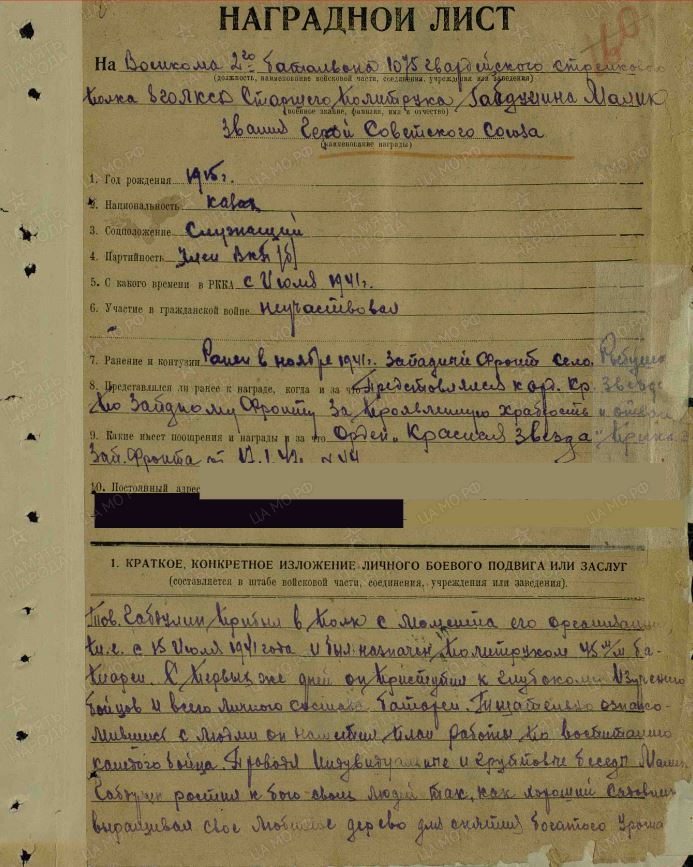 НАГРАДНОЙ ЛИСТ
На Военкома 2го батальона 1075 гвардейского стрелкового
(должность, наименование войсковой части, соединения, учреждения или заведения)
полка Старшего Политрука Габдулина Малик
(военное звание, фамилия, имя и отчество)
Звания Герой Советского Союза
(наименование награды)
1. Год рождения 1915г.
2. Национальность казах
3. Соцположение Служащий
4. Партийность Член ВКП(б)
5. С какого времени в РККА с Июля 1941г.
6. Участие в гражданской войне неучаствовал
7. Ранение и контузии Ранен в ноябре 1941г. Западный Фронт село
8. Представлялся ли ранее к награде, когда и за что Представлялся к орд. Кр. Звезд
по Западному Фронту за проявленную храбрость и отваг
9. Какие имеет поощрения и награды и за что Орден "Красная Звезда"
Зап. Фронта от 42г.
10. Постоянный адрес
1. КРАТКОЕ, КОНКРЕТНОЕ ИЗЛОЖЕНИЕ ЛИЧНОГО БОЕВОГО ПОДВИГА ИЛИ ЗАСЛУГ
(составляется в штабе войсковой части, соединения, учреждения или заведения).
Тов. Габдулин прибыл в полк с момента его организации
т.е. с 15 Июля 1941 года и был назначен Политруком 45 м/м ба-
тареи. С первых же дней он приступил к глубокому изучению
бойцов и всего личного состава батареи. Тщательно ознако-
мившись с людьми он наметил план работы по воспитанию
каждого бойца. Проводя индувидуальные и групповые беседы Малик
Габдулин растил к бою своих людей так, как хороший садовник
выращивал свое любимое дерево для снятия богатого урожа